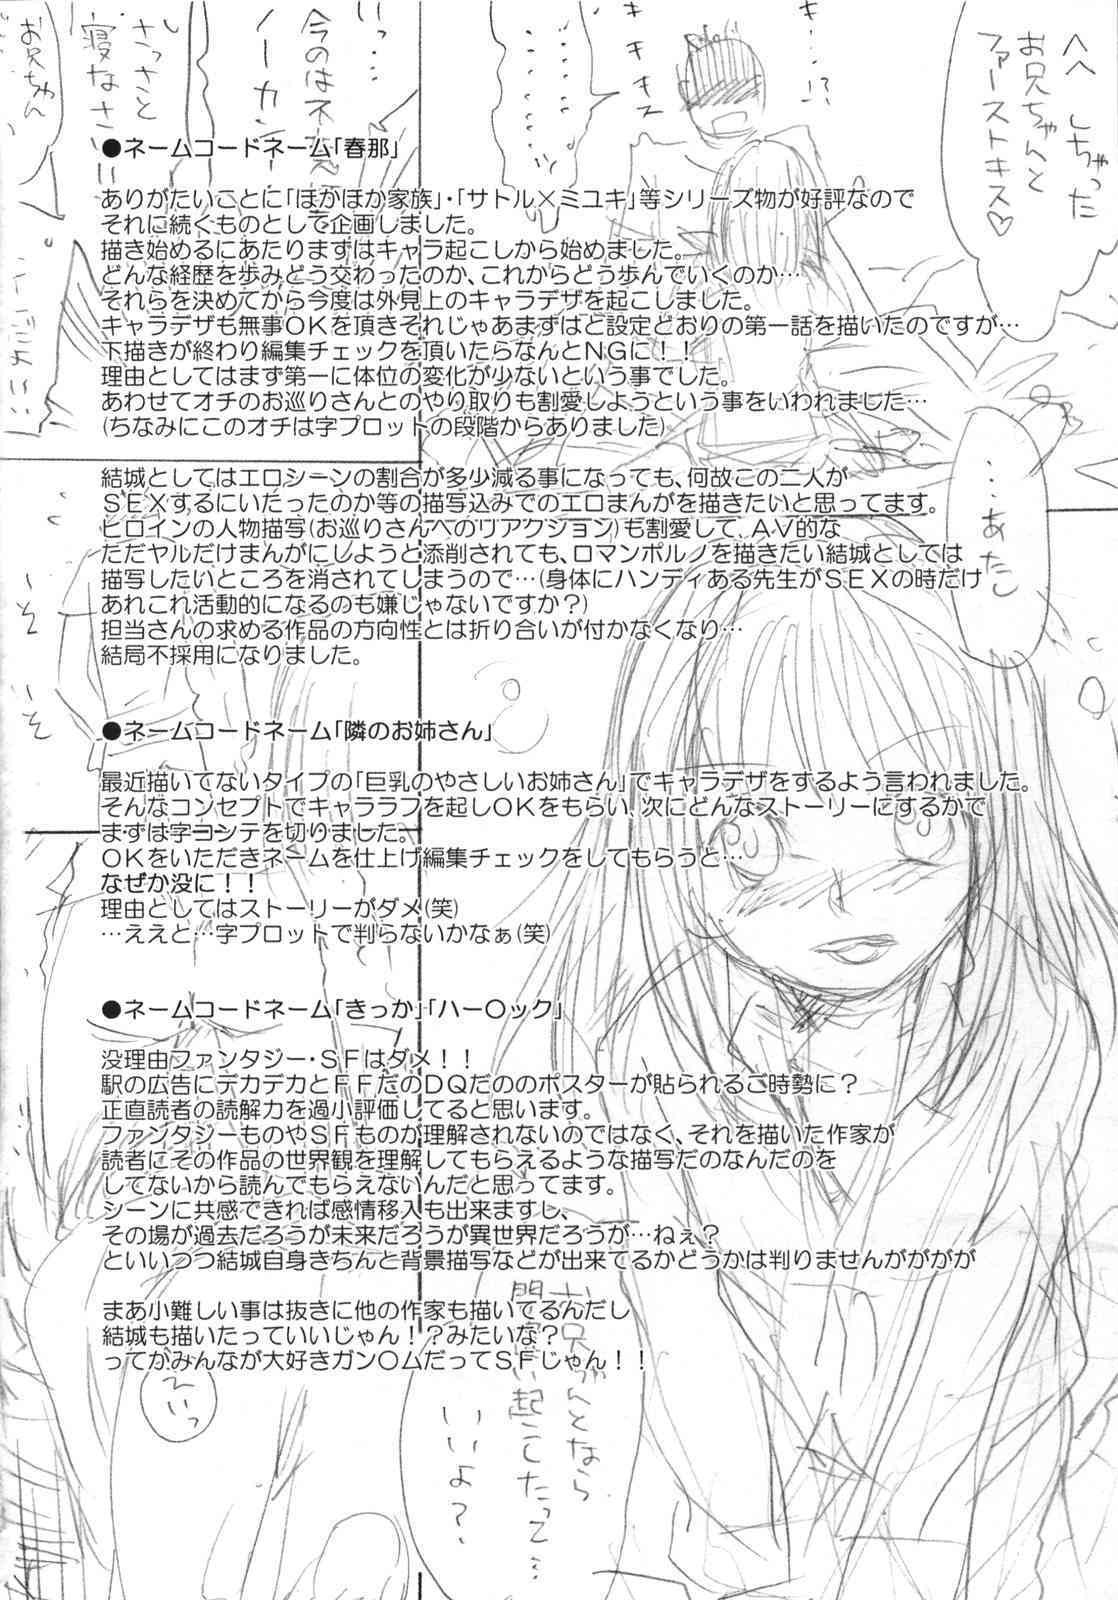 ●ネームコードネーム「春那」
ありがたいことに「ほかほか家族」・「サトル×ミユキ」等シリーズ物が好評なので
それに続くものとして企画しました。
描き始めるにあたりまずはキャラ起こしから始めました。
どんな経歴を歩みどう交わったのか、これからどう歩んでいくのか…
それらを決めてから今度は外見上のキャラデザを起こしました。
キャラデザも無事OKを頂きそれじゃあまずはと設定どおりの第一話を描いたのですが…
下描きが終わり編集チェックを頂いたらなんとNGに！！
理由としてはまず第一に体位の変化が少ないという事でした。
あわせてオチのお巡りさんとのやり取りも割愛しようという事をいわれました…
(ちなみにこのオチは字プロットの段階からありました)
結城としてはエロシーンの割合が多少減る事になっても、何故この二人が
SEXするにいたったのか等の描写込みでのエロまんがを描きたいと思ってます。
ヒロインの人物描写(お巡りさんへのリアクション)も割愛して、AV的な
ただヤルだけまんがにしようと添削されても、ロマンポルノを描きたい結城としては
描写したいところを消されてしまうので…(身体にハンディある先生がSEXの時だけ
あれこれ活動的になるのも嫌じゃないですか？)
担当さんの求める作品の方向性とは折り合いが付かなくなり…
結局不採用になりました。
●ネームコードネーム「隣のお姉さん」
最近描いてないタイプの「巨乳のやさしいお姉さん」でキャラデザをするよう言われました。
そんなコンセプトでキャララフを起しOKをもらい、次にどんなストーリーにするかで
まずは字コンテを切りました。
OKをいただきネームを仕上げ編集チェックをしてもらうと…
なぜか没に！！
理由としてはストーリーがダメ(笑)
…ええと…字プロットで判らないかなぁ(笑)
●ネームコードネーム「きっか」「ハー〇ック」
没理由ファンタジー・SFはダメ！！
駅の広告にデカデカとFFだのDQだののポスターが貼られるご時勢に？
正直読者の読解力を過小評価してると思います。
ファンタジーものやSFものが理解されないのではなく、それを描いた作家が
読者にその作品の世界観を理解してもらえるような描写だのなんだのを
してないから読んでもらえないんだと思ってます。
シーンに共感できれば感情移入も出来ますし、
その場が過去だろうが未来だろうが異世界だろうが…ねぇ？
といいつつ結城自身きちんと背景描写などが出来てるかどうかは判りませんがががが
まあ小難しい事は抜きに他の作家も描いてるんだし
結城も描いたっていいじゃん！？みたいな？
ってかみんなが大好きガン〇ムだってSFじゃん！！